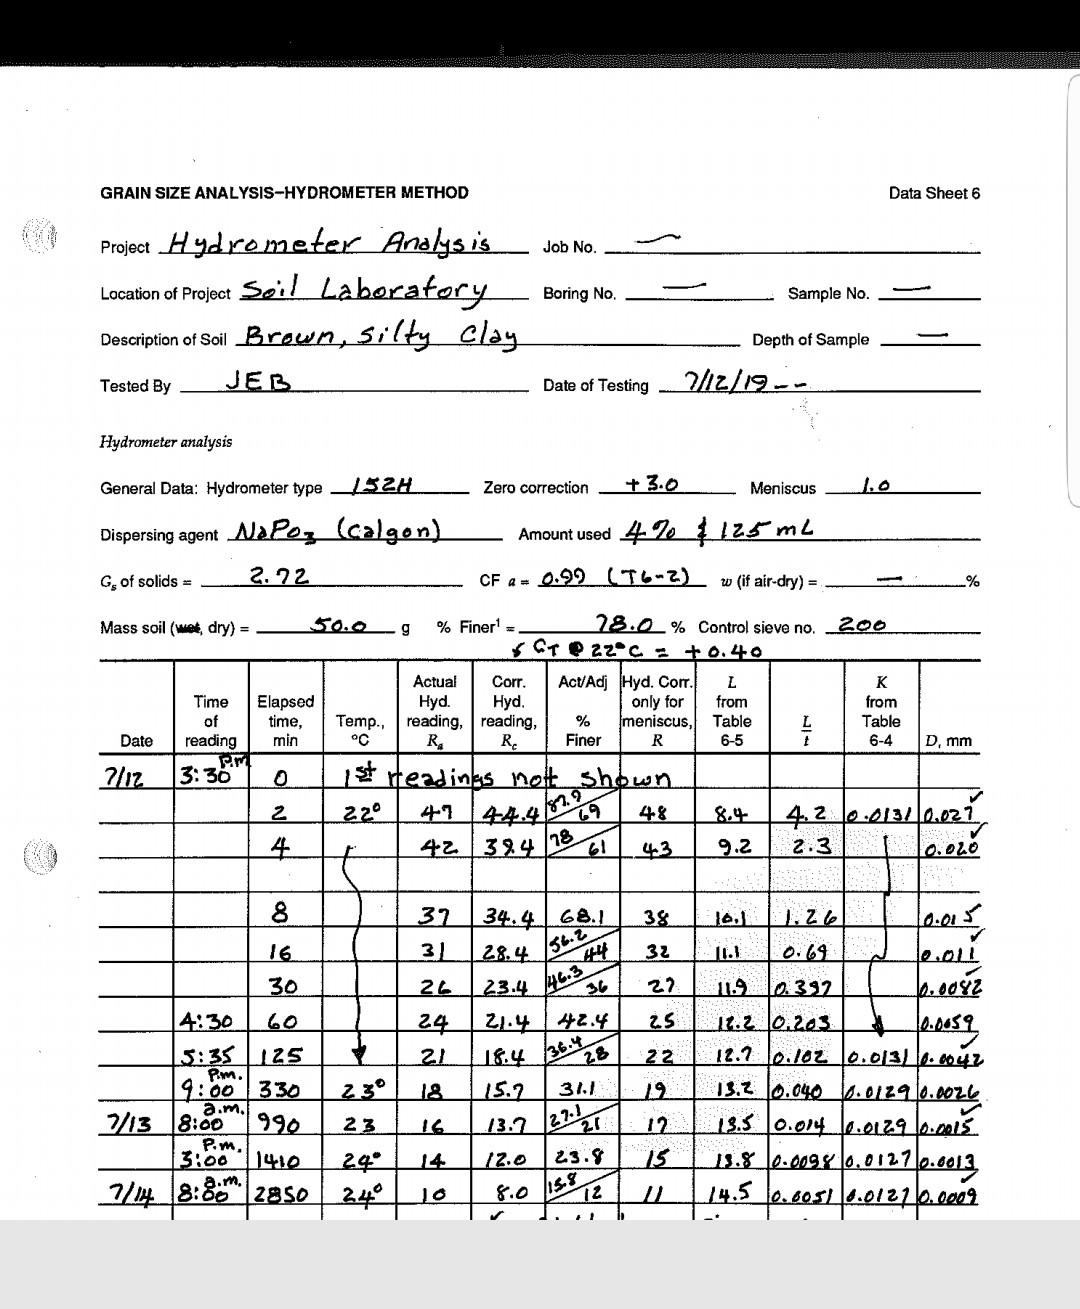 GRAIN SIZE ANALYSIS–HYDROMETER METHOD Data Sheet 6
Project Hydrometer Analysis Job No. —
Location of Project Soil Laboratory Boring No. — Sample No. —
Description of Soil Brown, silty Clay Depth of Sample —
Tested By JEB Date of Testing 7/12/19--
Hydrometer analysis
General Data: Hydrometer type 152H Zero correction +3.0 Meniscus 1.0
Dispersing agent NaPO3 (Calgon) Amount used 4% & 125 mL
Gs of solids = 2.72 CF a = 0.99 (T6-2) w (if air-dry) = — %
Mass soil (wet, dry) = 50.0 g % Finer1 = 78.0 % Control sieve no. 200
CT @ 22°C = +0.40
Date Time of reading Elapsed time, min Temp., °C Actual Hyd. reading, Ra Corr. Hyd. reading, Rc Act/Adj % Finer Hyd. Corr. only for meniscus, R L from Table 6-5 L/t K from Table 6-4 D, mm
7/12 3:30 P.m 0 1st readings not shown
2 22° 47 44.4 87.9/69 48 8.4 4.2 0.0131 0.027
4 42 39.4 78/61 43 9.2 2.3 0.020
8 37 34.4 68.1 38 10.1 1.26 0.015
16 31 28.4 56.2/44 32 11.1 0.69 0.011
30 26 23.4 46.3/36 27 11.9 0.397 0.0082
4:30 60 24 21.4 42.4 25 12.2 0.203 0.0059
5:35 125 21 18.4 36.4/28 22 12.7 0.102 0.0131 0.0042
9:00 P.m. 330 23° 18 15.7 31.1 19 13.2 0.040 0.0129 0.0026
7/13 8:00 a.m. 990 23 16 13.7 27.1/21 17 13.5 0.014 0.0129 0.0015
3:00 P.m. 1410 24° 14 12.0 23.8 15 13.8 0.0098 0.0127 0.0013
7/14 8:00 a.m. 2850 24° 10 8.0 15.8/12 11 14.5 0.0051 0.0127 0.0009